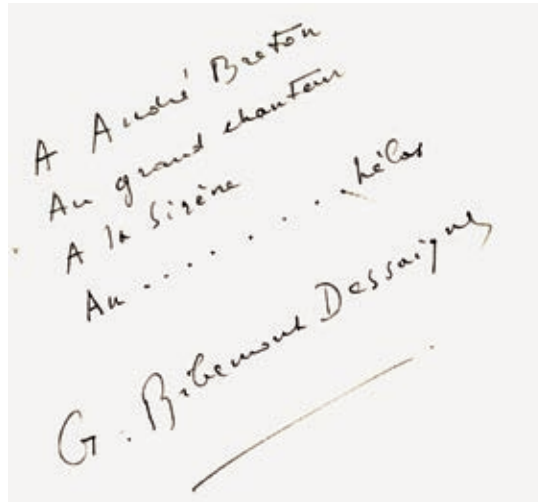 A André Breton
Au grand chanteur
A la Sirène
Au ........ hélas
G. Ribemont Dessaignes